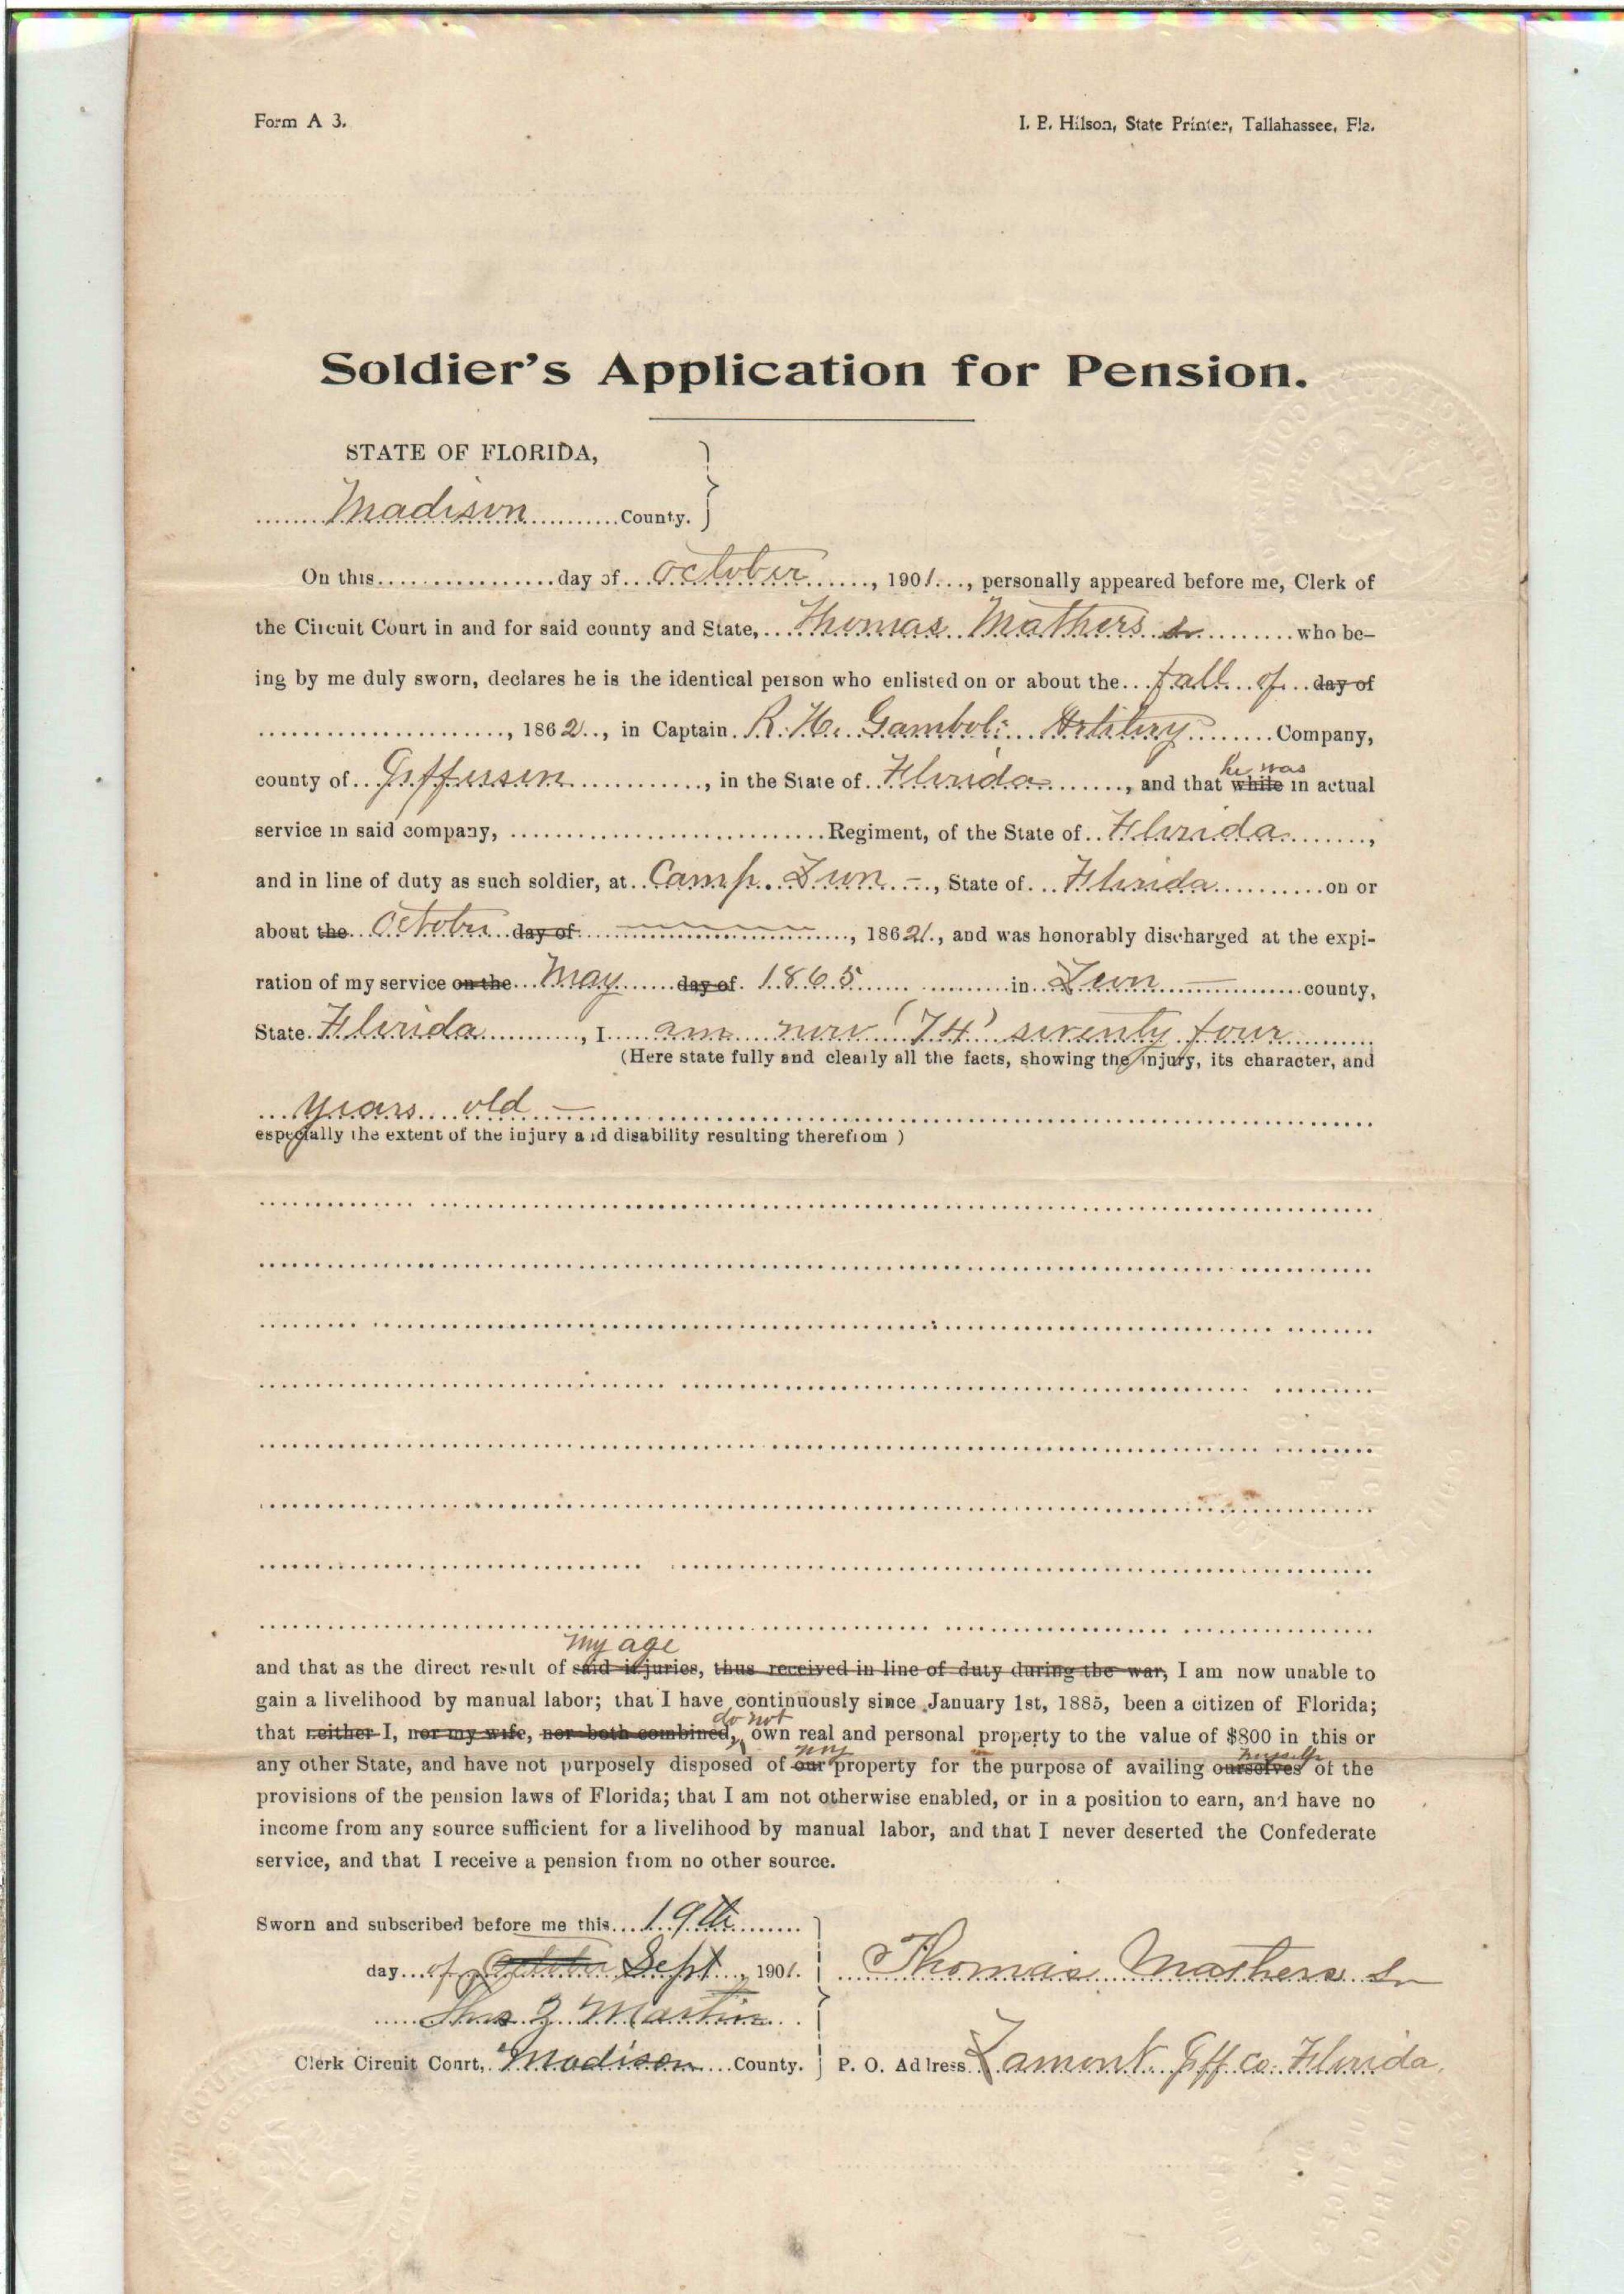 Form A 3.
I. B. Hilson, State Printer, Tallahassee, Fla.
Soldier's Application for Pension.
STATE OF FLORIDA,
Madison County.
On this day of October, 1901, personally appeared before me, Clerk of
the Circuit Court in and for said county and State, Thomas Mathers Sr who be-
ing by me duly sworn, declares he is the identical person who enlisted on or about the fall of day of
, 1862, in Captain R. H. Gambol: Artilery Company,
county of Jefferson, in the State of Florida, and that he was while in actual
service in said company, Regiment, of the State of Florida,
and in line of duty as such soldier, at Camp Leon, State of Florida on or
about the October day of , 1862, and was honorably discharged at the expi-
ration of my service on the May day of 1865 in Leon county,
State Florida, I am now (74) seventy four
(Here state fully and clearly all the facts, showing the injury, its character, and
years old
especially the extent of the injury and disability resulting therefrom )
my age
and that as the direct result of said injuries, thus received in line of duty during the war, I am now unable to
gain a livelihood by manual labor; that I have continuously since January 1st, 1885, been a citizen of Florida;
that neither I, nor my wife, nor both combined, do not own real and personal property to the value of $800 in this or
any other State, and have not purposely disposed of our my property for the purpose of availing ourselves myself of the
provisions of the pension laws of Florida; that I am not otherwise enabled, or in a position to earn, and have no
income from any source sufficient for a livelihood by manual labor, and that I never deserted the Confederate
service, and that I receive a pension from no other source.
Sworn and subscribed before me this 19th
day of October Sept, 1901.
Thomas Mathers Sr
Martin
Clerk Circuit Court, Madison County.
P. O. Address Lamont Jeff Co. Florida